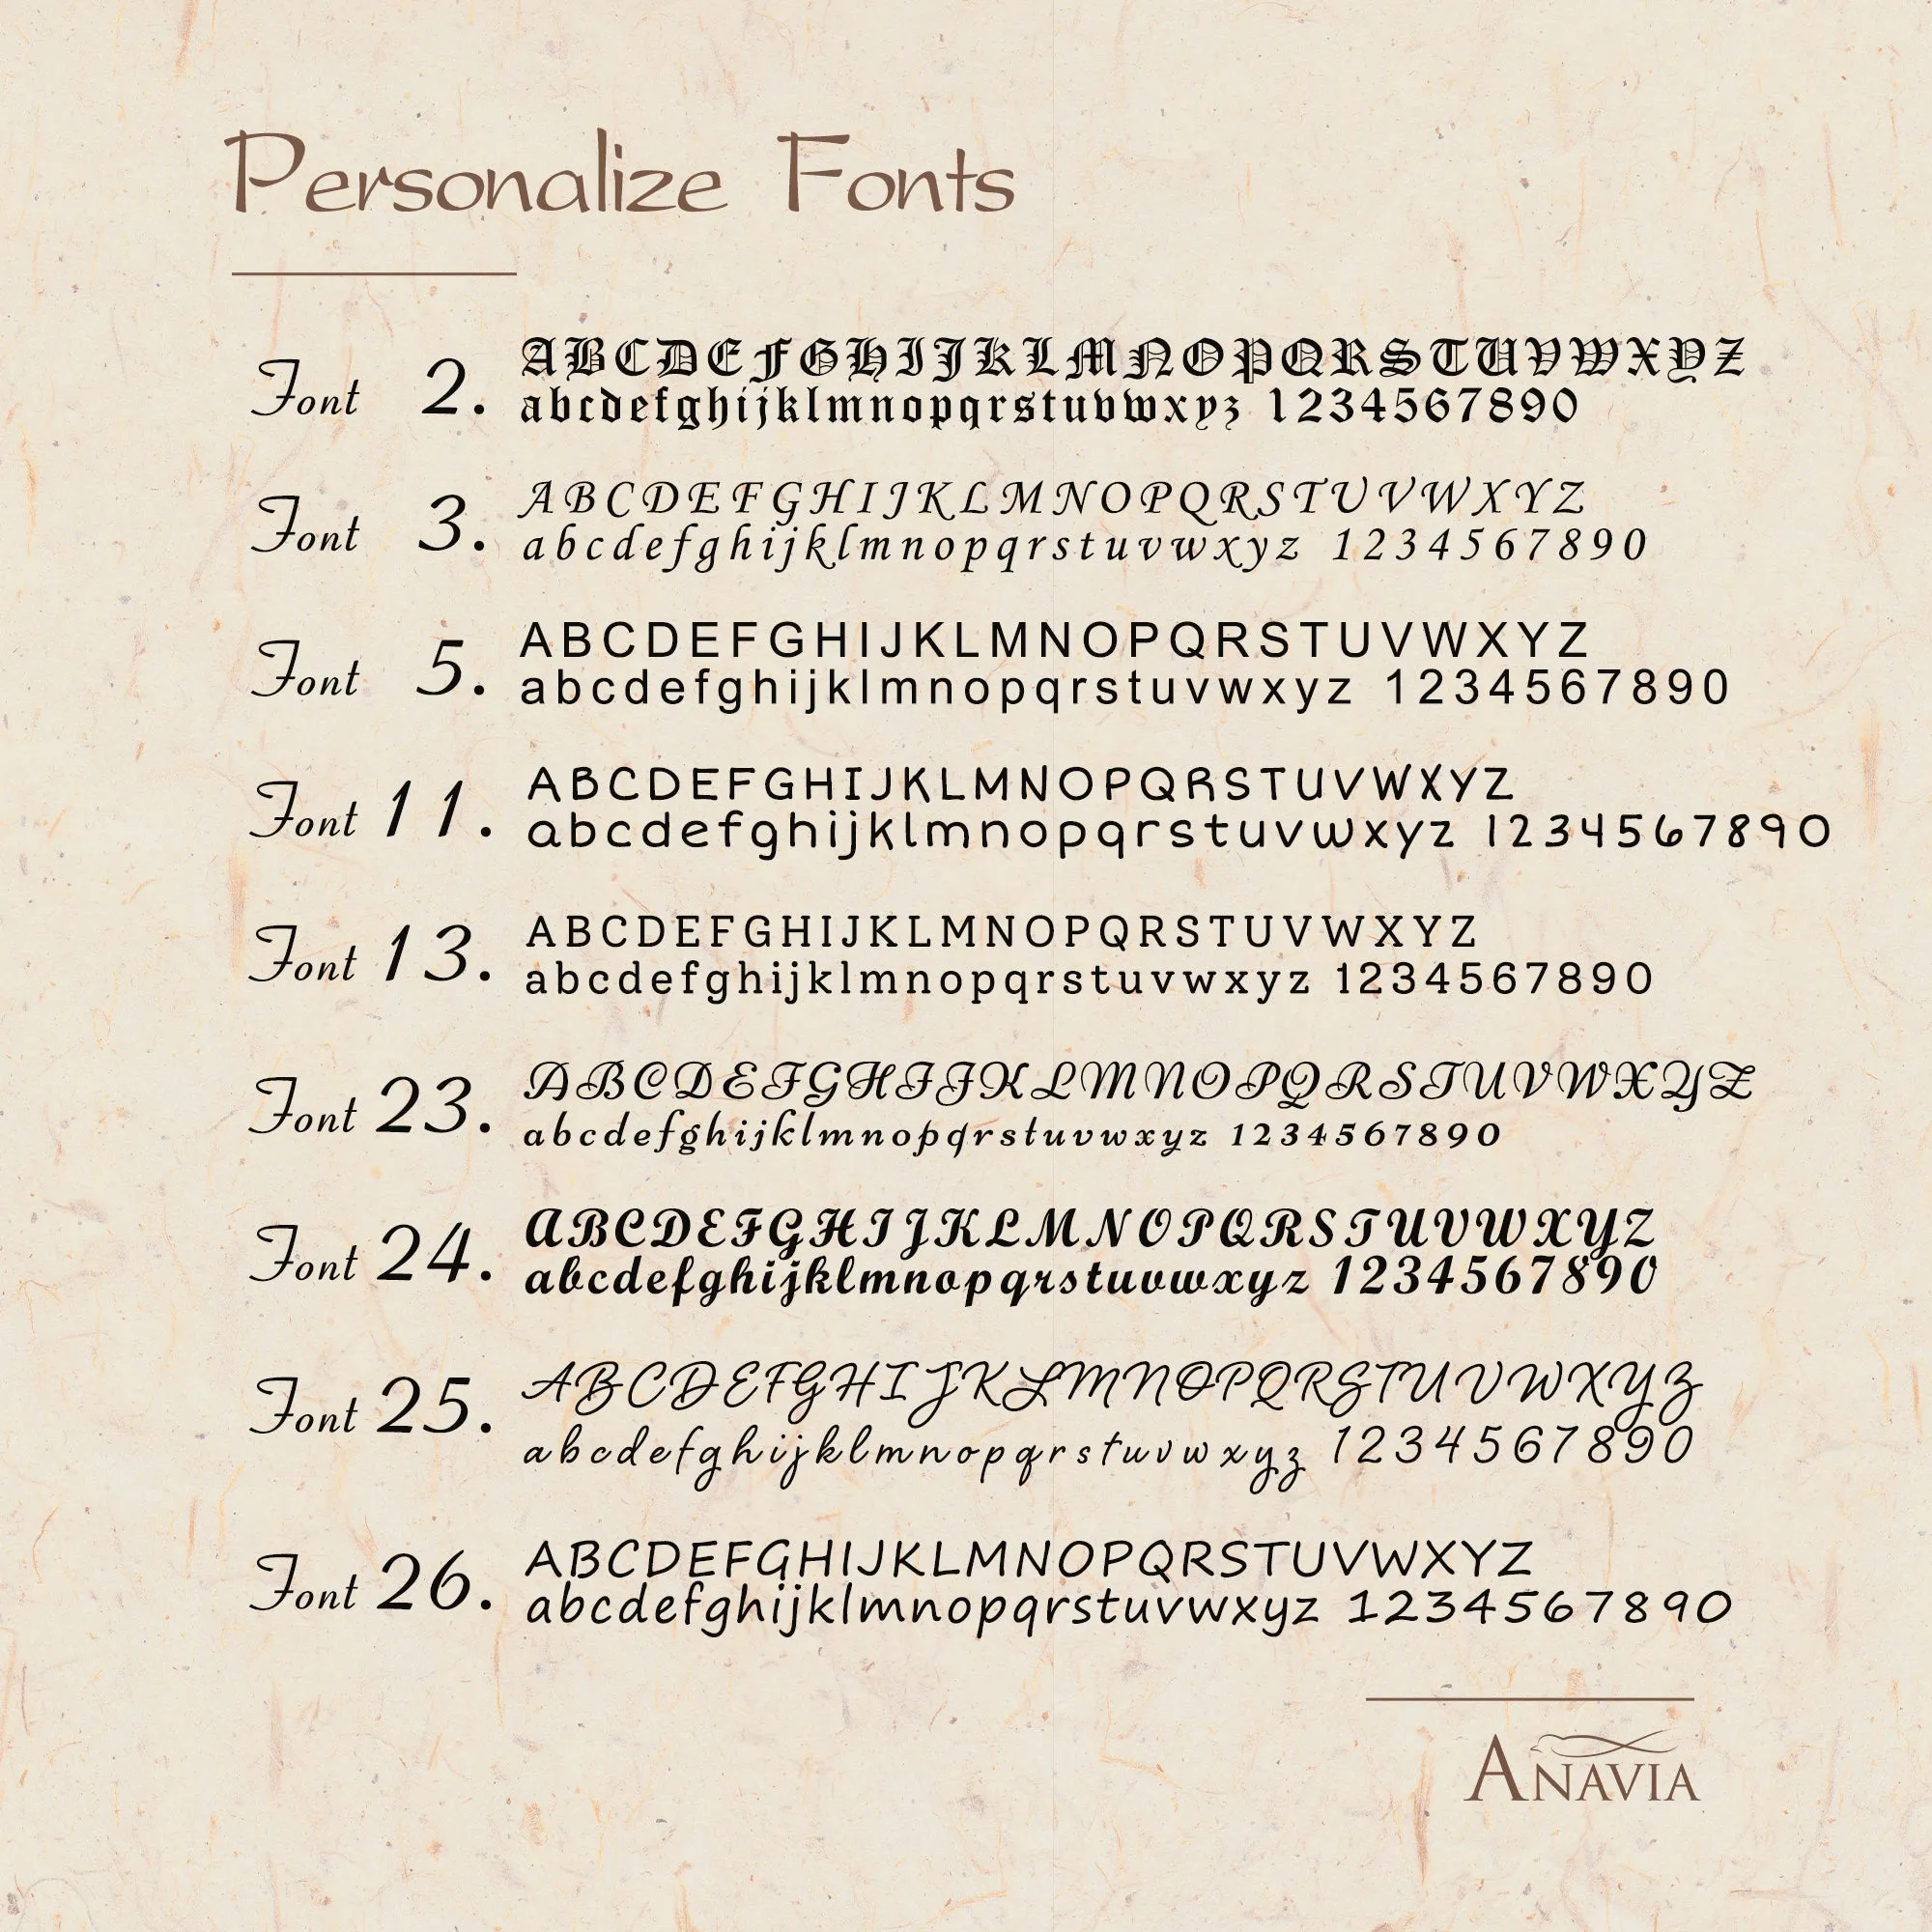 Personalize Fonts
Font 2. ABCDEFGHIJKLMNOPQRSTUVWXYZ
abcdefghijklmnopqrstuvwxyz 1234567890
Font 3. ABCDEFGHIJKLMNOPQRSTUVWXYZ
abcdefghijklmnopqrstuvwxyz 1234567890
Font 5. ABCDEFGHIJKLMNOPQRSTUVWXYZ
abcdefghijklmnopqrstuvwxyz 1234567890
Font 11. ABCDEFGHIJKLMNOPQRSTUVWXYZ
abcdefghijklmnopqrstuvwxyz 1234567890
Font 13. ABCDEFGHIJKLMNOPQRSTUVWXYZ
abcdefghijklmnopqrstuvwxyz 1234567890
Font 23. ABCDEFGHIJKLMNOPQRSTUVWXYZ
abcdefghijklmnopqrstuvwxyz 1234567890
Font 24. ABCDEFGHIJKLMNOPQRSTUVWXYZ
abcdefghijklmnopqrstuvwxyz 1234567890
Font 25. ABCDEFGHIJKLMNOPQRSTUVWXYZ
abcdefghijklmnopqrstuvwxyz 1234567890
Font 26. ABCDEFGHIJKLMNOPQRSTUVWXYZ
abcdefghijklmnopqrstuvwxyz 1234567890
ANAVIA